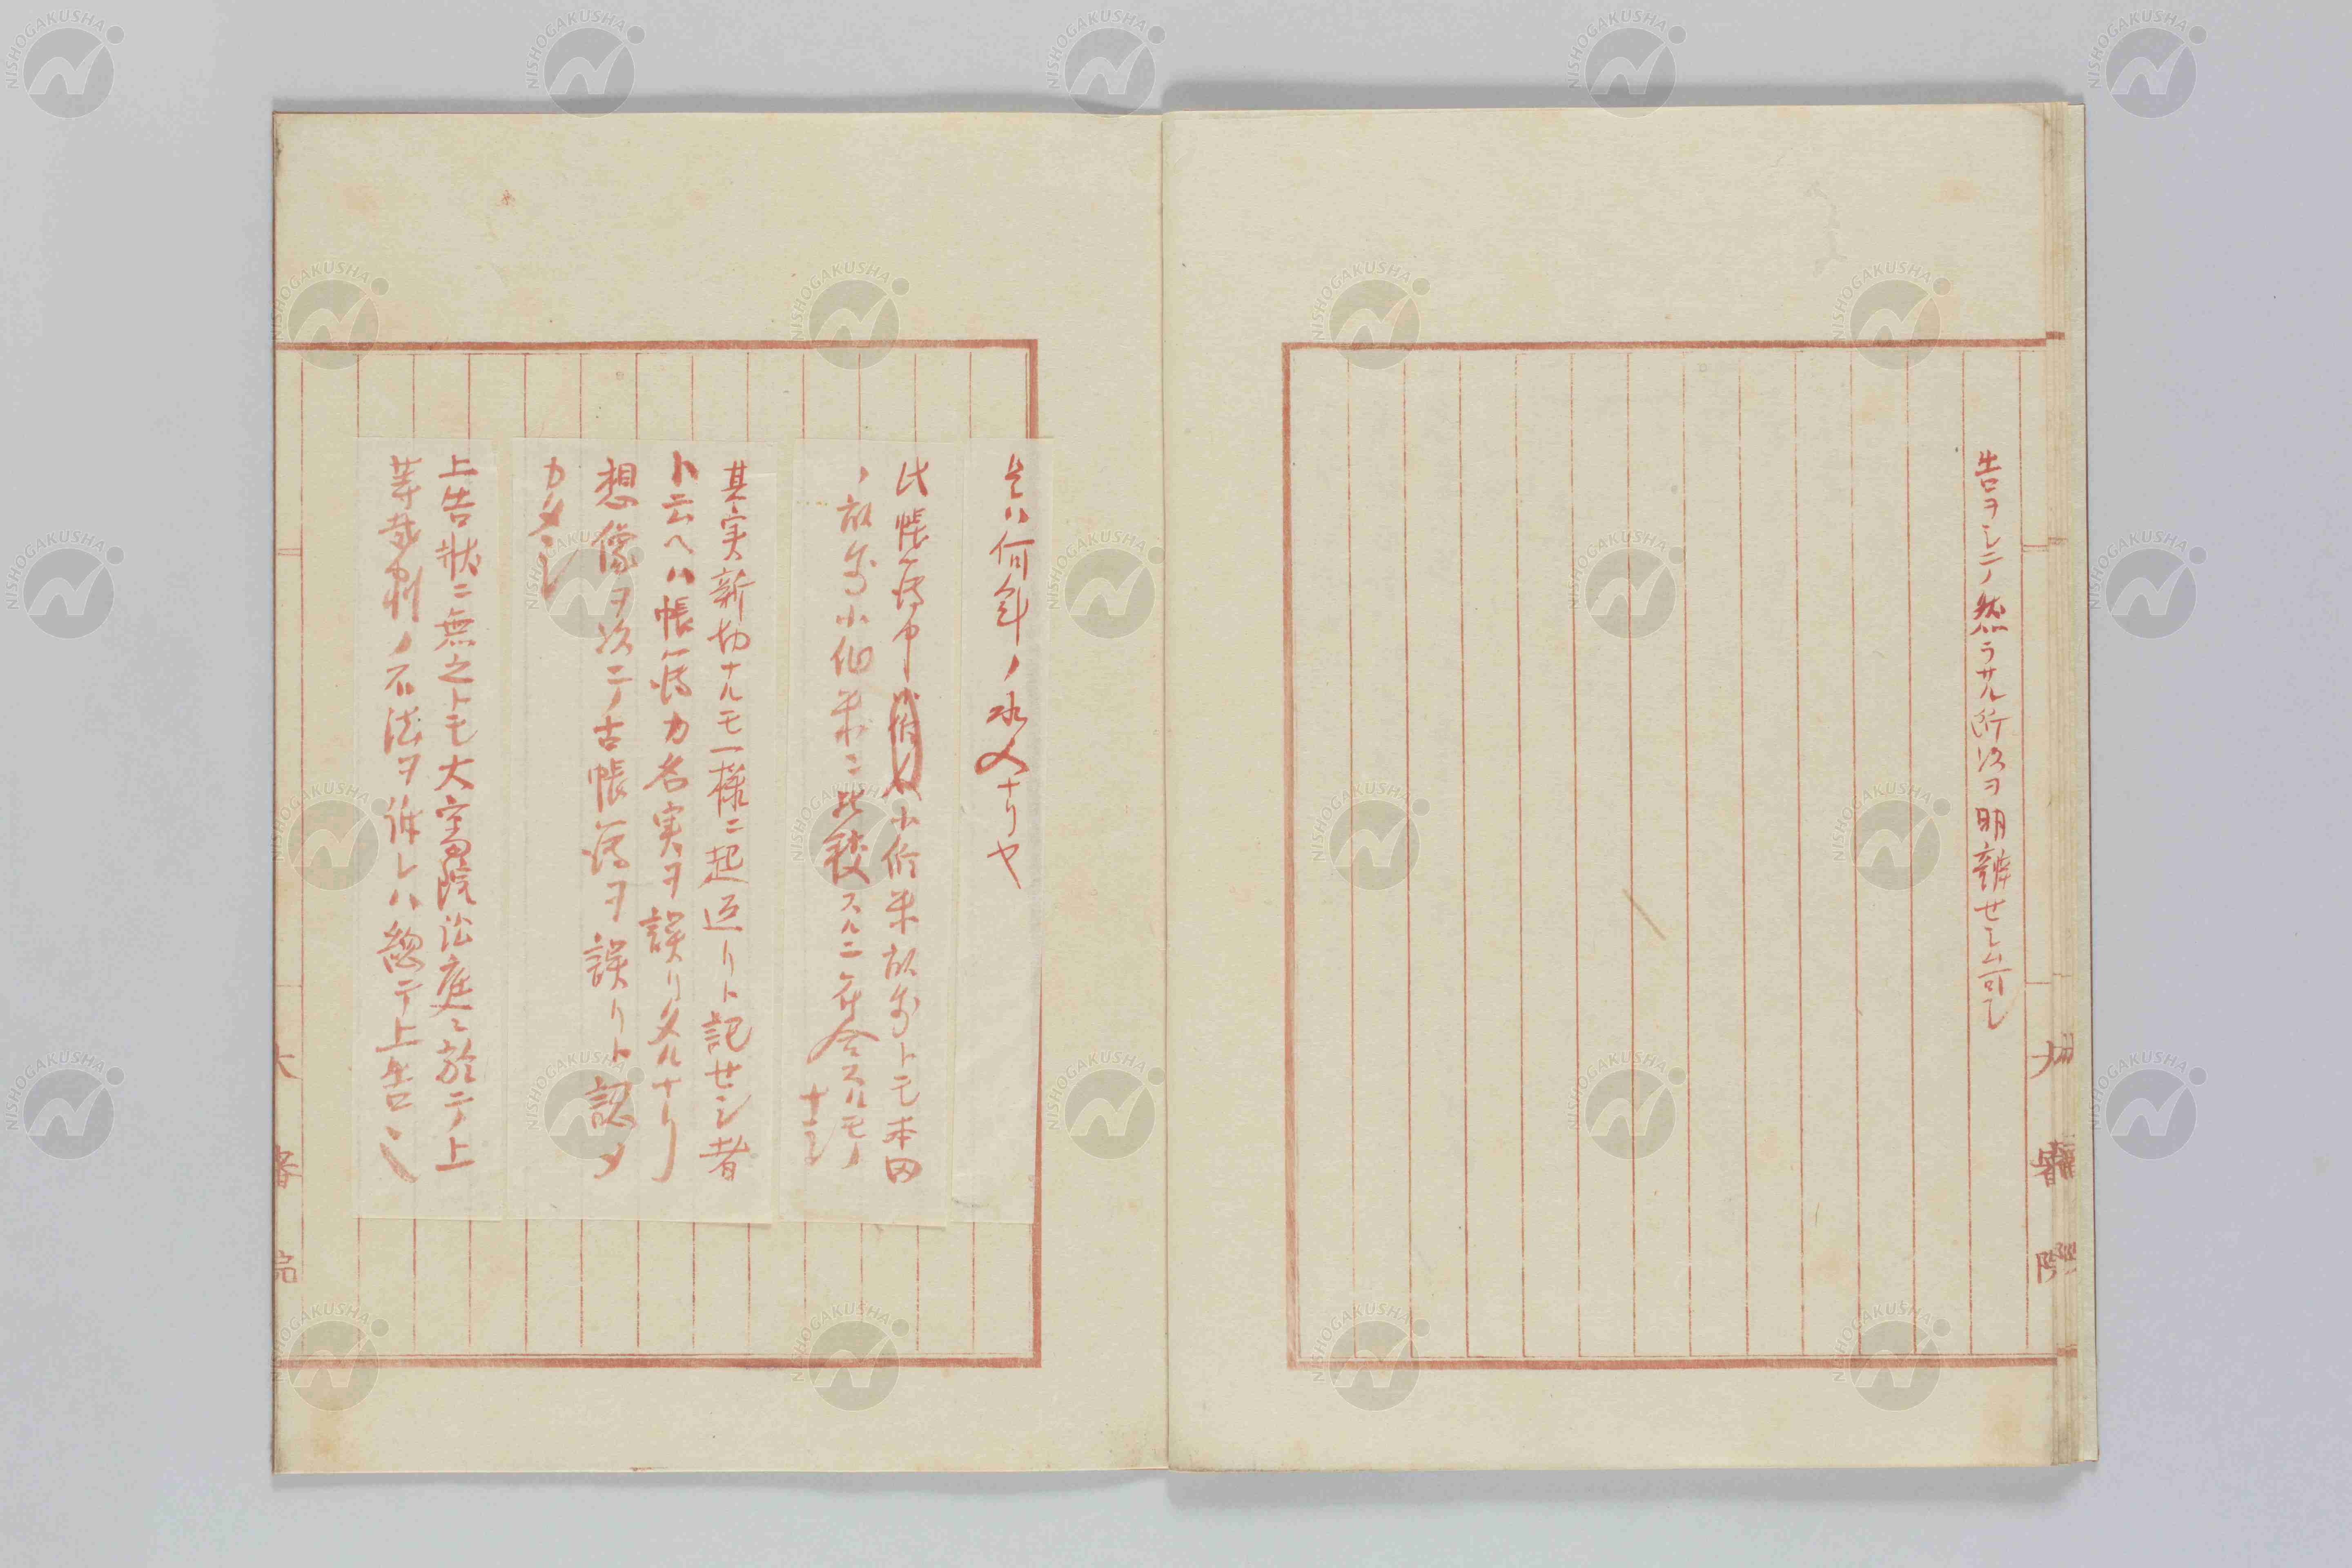 告ヲシテ然ラサル所以ヲ明辨セシム可シ
大審院
是ハ何年ノ水入ナリヤ
此帳簿中小作米故障トモ本田
ノ故障小作米ニ比較スルニ符合スルモノ
ナシ
其実新切ナルモ一様ニ起返リト記セシ者
ト云ヘハ帳簿カ名実ヲ誤リタルナリ
想像ヲ以テ古帳簿ヲ誤リト認メ
カタシ
上告状ニ無之トモ大審院法庭ニ於テ上
等裁判ノ不法ヲ訴レハ總テ上告
大審院
NISHOGAKUSHA